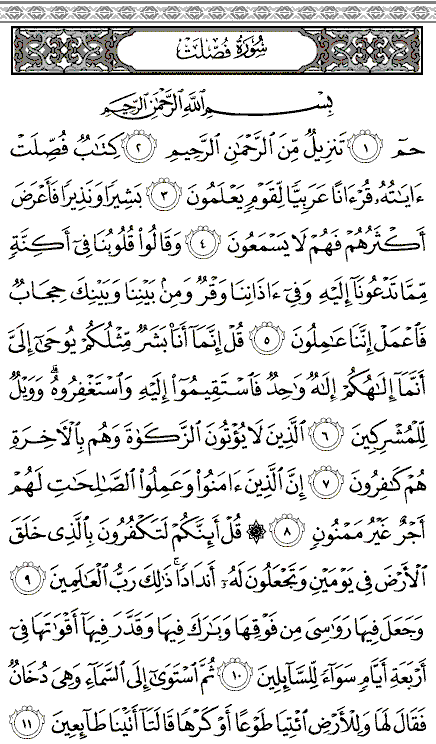 سُورَةُ فُصِّلَتْ
بِسْمِ ٱللَّهِ ٱلرَّحْمَٰنِ ٱلرَّحِيمِ
حمٓ ١ تَنزِيلٌ مِّنَ ٱلرَّحْمَٰنِ ٱلرَّحِيمِ ٢ كِتَٰبٌ فُصِّلَتْ
ءَايَٰتُهُۥ قُرْءَانًا عَرَبِيًّا لِّقَوْمٍ يَعْلَمُونَ ٣ بَشِيرًا وَنَذِيرًا فَأَعْرَضَ
أَكْثَرُهُمْ فَهُمْ لَا يَسْمَعُونَ ٤ وَقَالُوا۟ قُلُوبُنَا فِىٓ أَكِنَّةٍ
مِّمَّا تَدْعُونَآ إِلَيْهِ وَفِىٓ ءَاذَانِنَا وَقْرٌ وَمِنۢ بَيْنِنَا وَبَيْنِكَ حِجَابٌ
فَٱعْمَلْ إِنَّنَا عَٰمِلُونَ ٥ قُلْ إِنَّمَآ أَنَا۠ بَشَرٌ مِّثْلُكُمْ يُوحَىٰٓ إِلَىَّ
أَنَّمَآ إِلَٰهُكُمْ إِلَٰهٌ وَٰحِدٌ فَٱسْتَقِيمُوٓا۟ إِلَيْهِ وَٱسْتَغْفِرُوهُ ۗ وَوَيْلٌ
لِّلْمُشْرِكِينَ ٦ ٱلَّذِينَ لَا يُؤْتُونَ ٱلزَّكَوٰةَ وَهُم بِٱلْءَاخِرَةِ
هُمْ كَٰفِرُونَ ٧ إِنَّ ٱلَّذِينَ ءَامَنُوا۟ وَعَمِلُوا۟ ٱلصَّٰلِحَٰتِ لَهُمْ
أَجْرٌ غَيْرُ مَمْنُونٍ ٨ ۞ قُلْ أَئِنَّكُمْ لَتَكْفُرُونَ بِٱلَّذِى خَلَقَ
ٱلْأَرْضَ فِى يَوْمَيْنِ وَتَجْعَلُونَ لَهُۥٓ أَندَادًا ۚ ذَٰلِكَ رَبُّ ٱلْعَٰلَمِينَ ٩
وَجَعَلَ فِيهَا رَوَٰسِىَ مِن فَوْقِهَا وَبَٰرَكَ فِيهَا وَقَدَّرَ فِيهَآ أَقْوَٰتَهَا فِىٓ
أَرْبَعَةِ أَيَّامٍ سَوَآءً لِّلسَّآئِلِينَ ١٠ ثُمَّ ٱسْتَوَىٰٓ إِلَى ٱلسَّمَآءِ وَهِىَ دُخَانٌ
فَقَالَ لَهَا وَلِلْأَرْضِ ٱئْتِيَا طَوْعًا أَوْ كَرْهًا قَالَتَآ أَتَيْنَا طَآئِعِينَ ١١